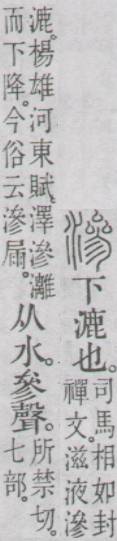 滲
下漉也。
司馬相如封
禪文。滋液滲
漉。楊雄河東賦。澤滲灕
而下降。今俗云滲屚。
从水。參聲。
所禁切。
七部。